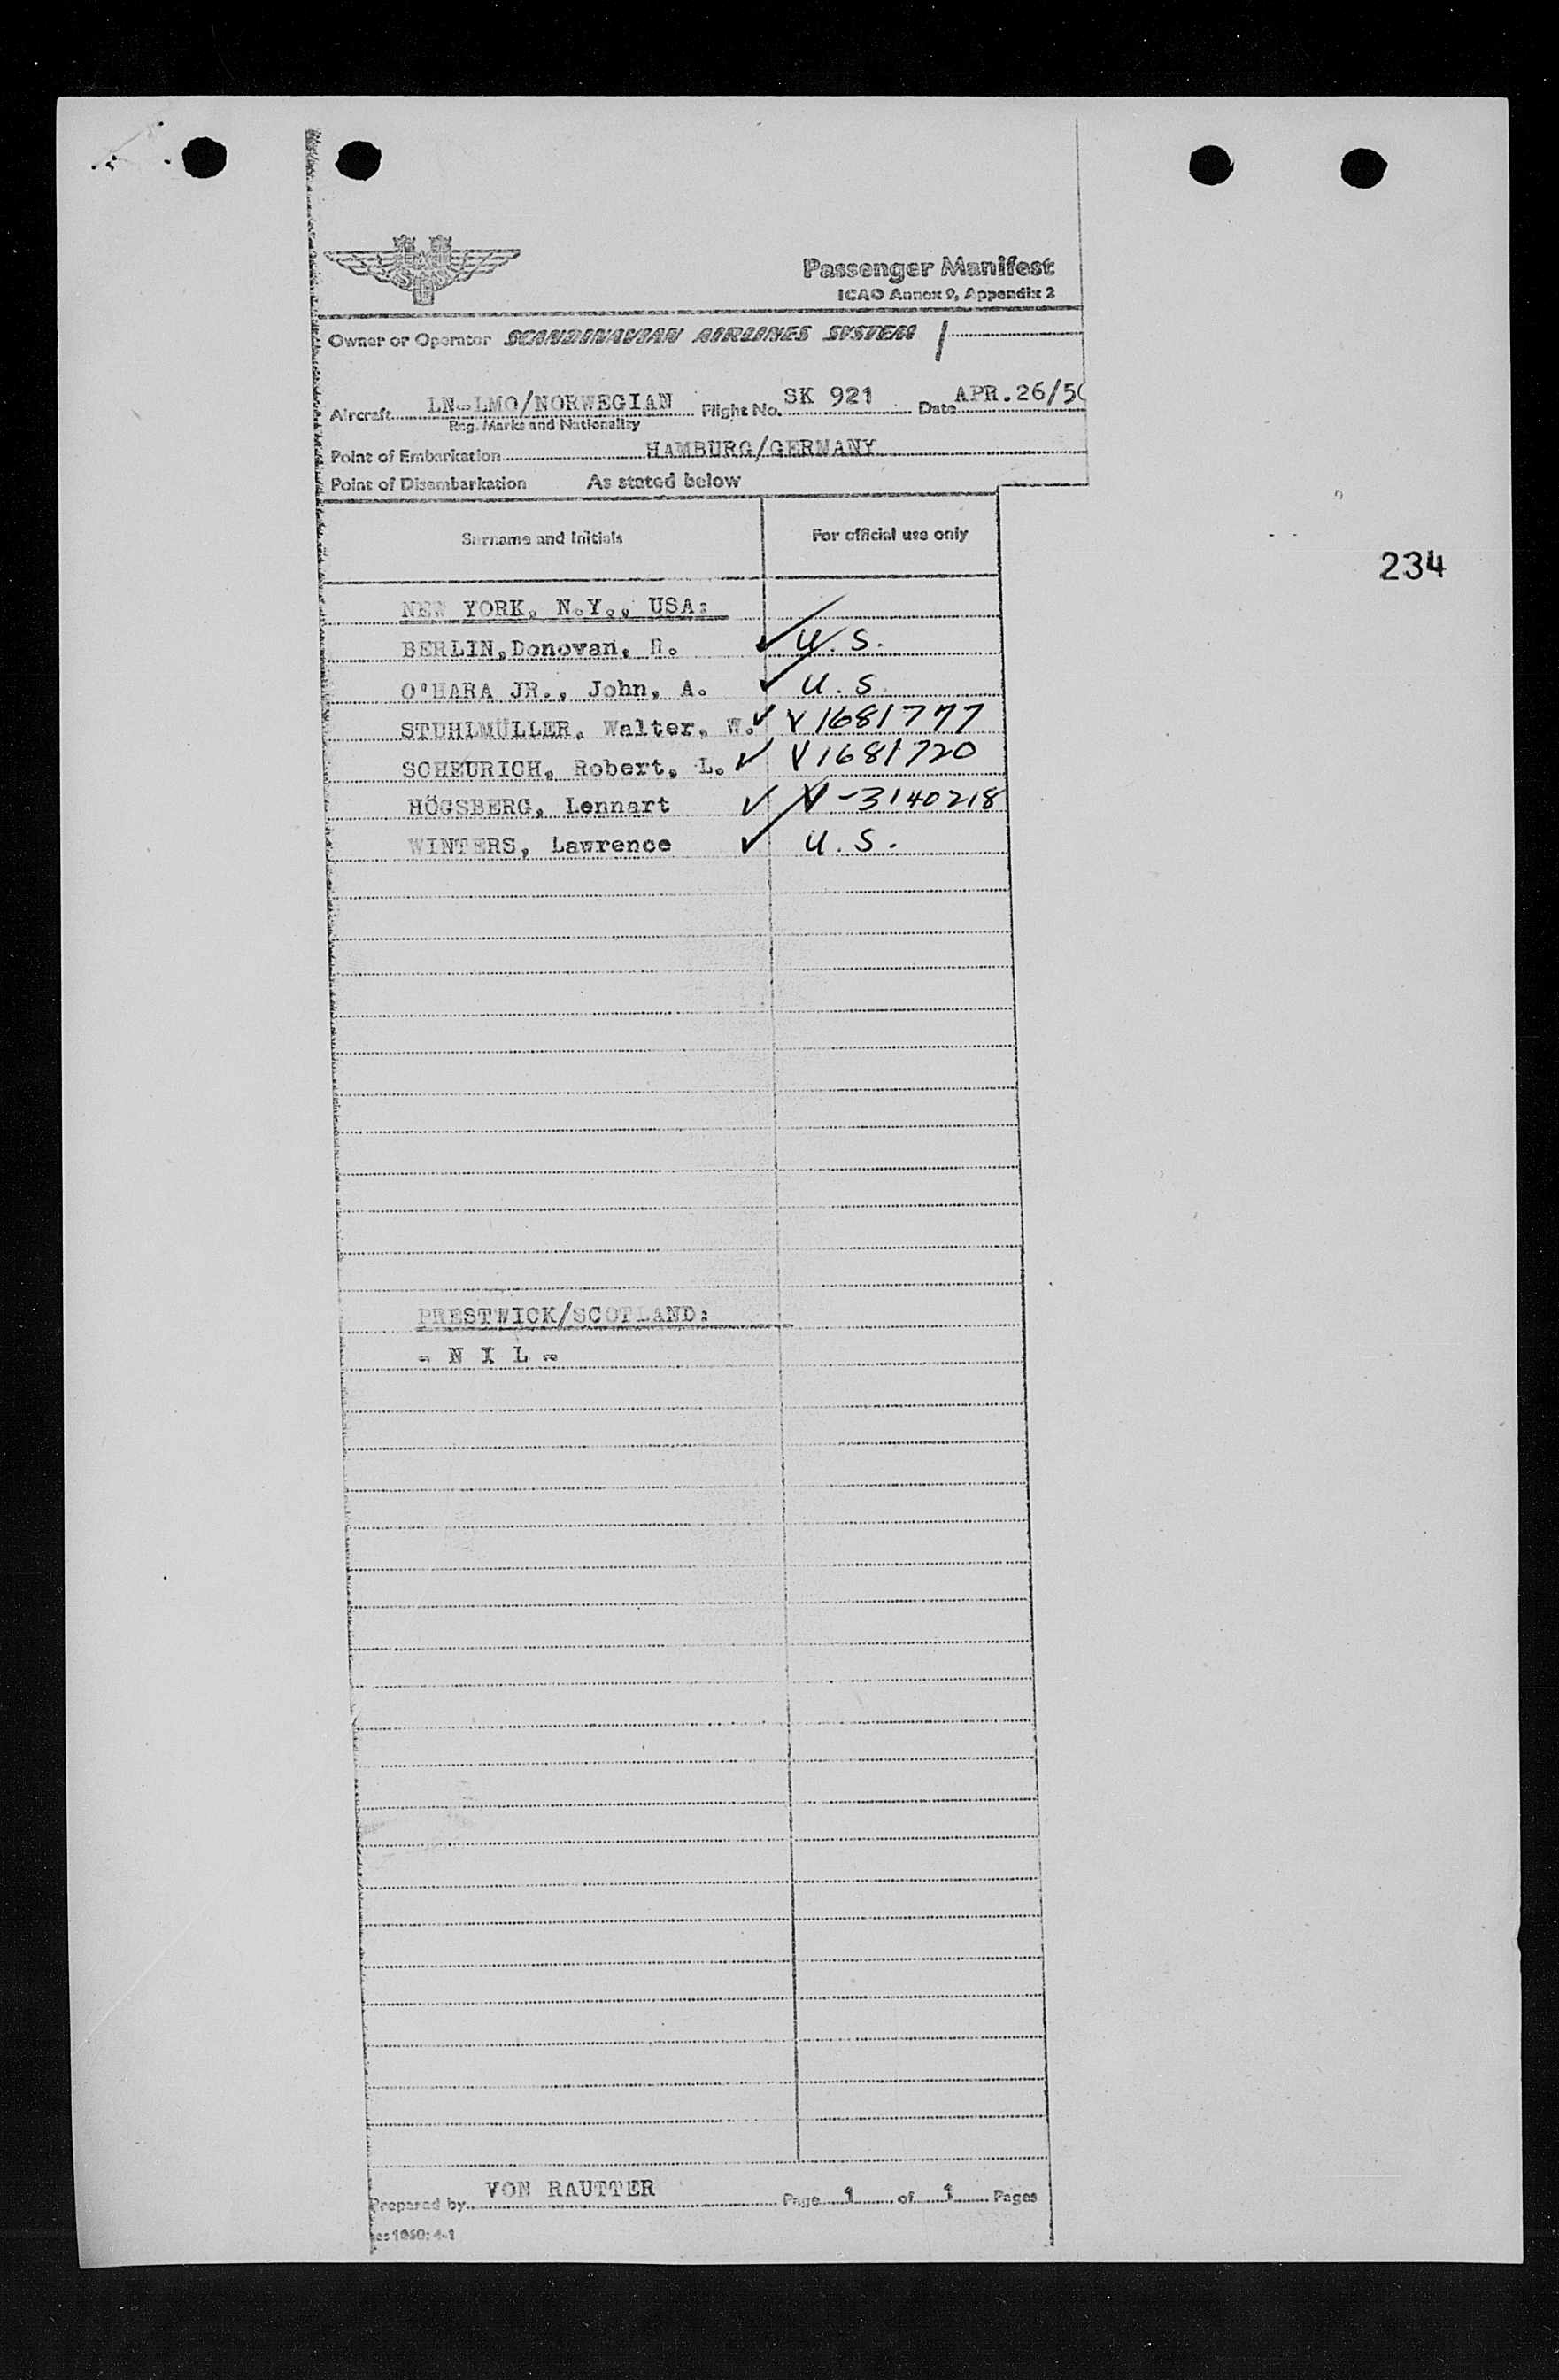 Passenger Manifest
ICAO Annex 9, Appendix 2
Owner or Operator SCANDINAVIAN AIRLINES SYSTEM
Aircraft LN-LMO/NORWEGIAN Flight No. SK 921 Date APR.26/50
Reg. Marks and Nationality
Point of Embarkation HAMBURG/GERMANY
Point of Disembarkation As stated below
Surname and Initials For official use only
234
NEW YORK, N.Y., USA:
BERLIN,Donovan, ✓ U.S.
O'HARA JR., John, A. ✓ U.S.
STUHLMÜLLER, Walter, W. ✓ V1681777
SCHEURICH, Robert, L. ✓ V1681720
HÖGSBERG, Lennart ✓ V-3140218
WINTERS, Lawrence ✓ U.S.
PRESTWICK/SCOTLAND:
- N I L -
Prepared by VON RAUTTER Page 1 of 1 Pages